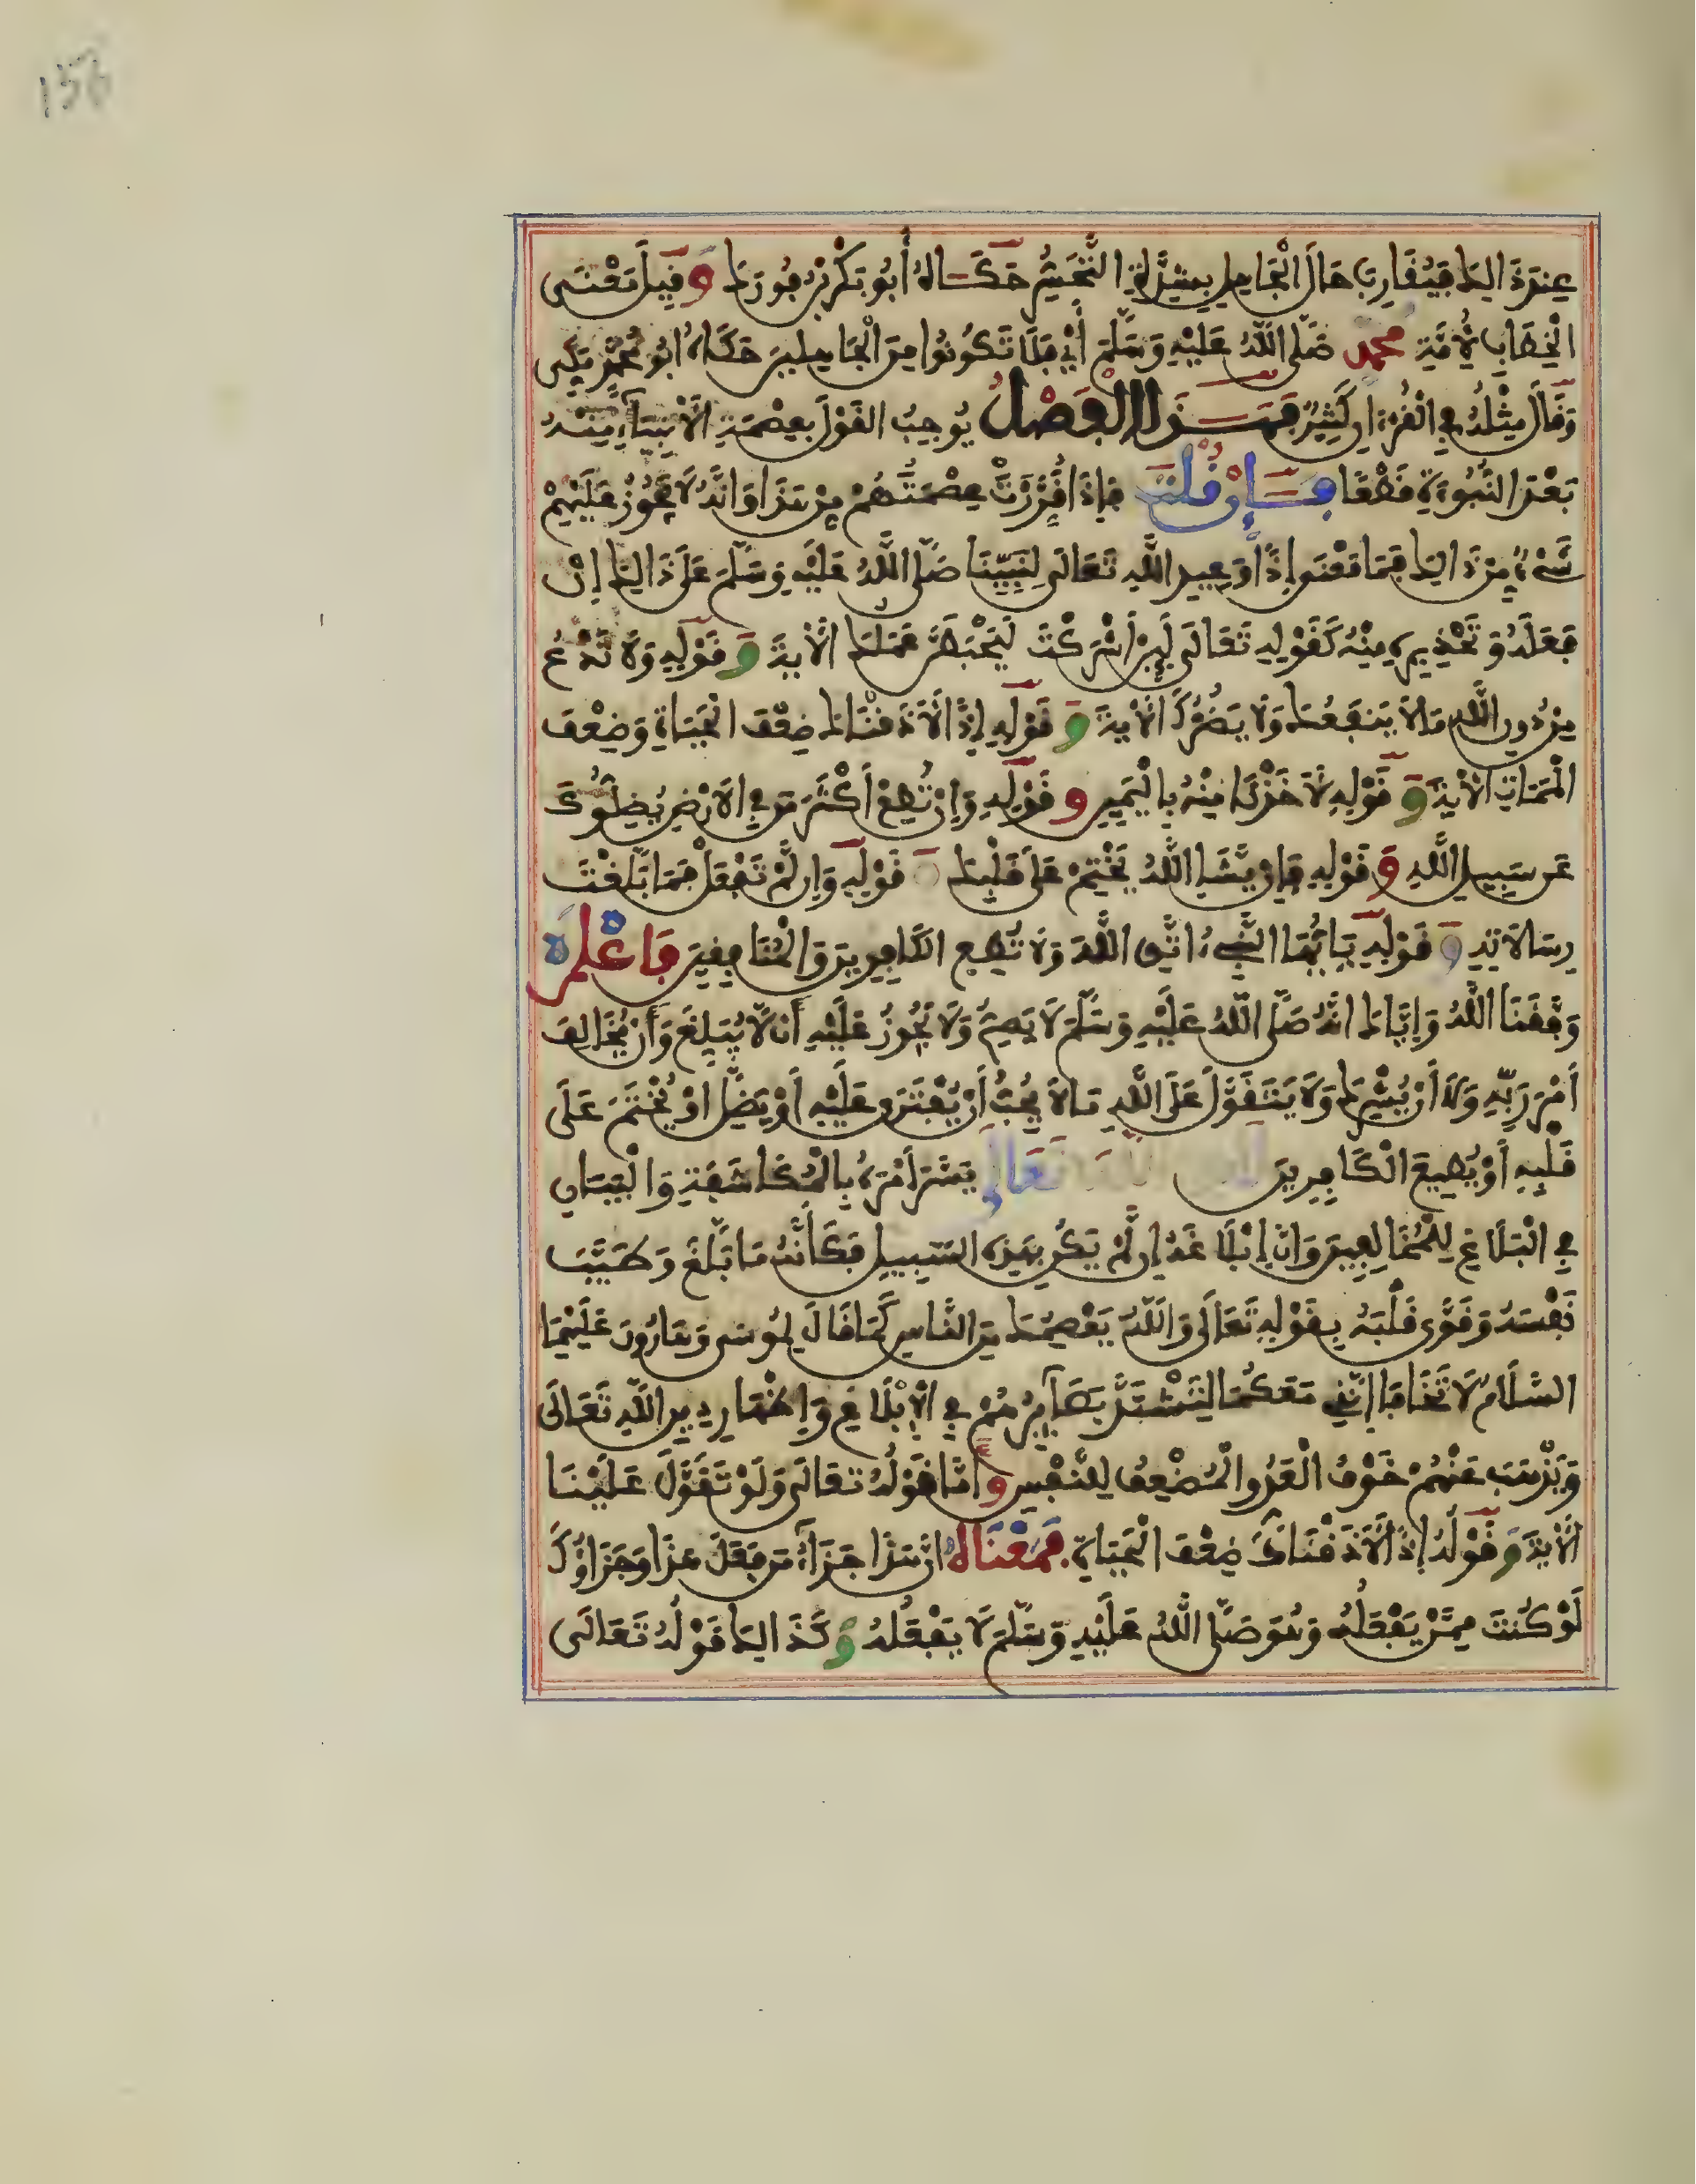 156
عِندَ ذَالِكَ فَيُقَارِبَ حَالَ الْجَاهِلِ بِشِدَّةِ التَّحَسُّرِ حَكَاهُ أَبُو بَكْرِ بْنُ فُورَكَ وَقِيلَ مَعْنَى
الْخِطَابِ لِأُمَّةِ مُحَمَّدٍ صَلَّى اللَّهُ عَلَيْهِ وَسَلَّمَ أَيْ فَلَا تَكُونُوا مِنَ الْجَاهِلِينَ حَكَاهُ أَبُو مُحَمَّدٍ مَكِّي
وَقَالَ مِثْلُهُ فِي الْقُرْءَانِ كَثِيرٌ فَبِهَـذَا الْفَضْلِ يُوجِبُ الْقَوْلَ بِعِصْمَةِ الْأَنْبِيَاءِ مِنْهُ
بَعْدَ النُّبُوءَةِ قَطْعًا فَإِنْ قُلْتَ فَإِذَا قَرَّرْتَ عِصْمَتَهُمْ مِنْ هَذَا وَأَنَّهُ لَا يَجُوزُ عَلَيْهِمْ
شَيْءٌ مِنْ ذَالِكَ فَمَا مَعْنَى إِذًا وَعِيدِ اللَّهِ تَعَالَى لِنَبِيِّنَا صَلَّى اللَّهُ عَلَيْهِ وَسَلَّمَ عَلَى ذَالِكَ إِنْ
فَعَلَهُ وَتَحْذِيرِهِ مِنْهُ كَقَوْلِهِ تَعَالَى لَئِنْ أَشْرَكْتَ لَيَحْبَطَنَّ عَمَلُكَ الْآيَةَ وَقَوْلِهِ وَلَا تَدْعُ
مِنْ دُونِ اللَّهِ مَا لَا يَنْفَعُكَ وَلَا يَضُرُّكَ الْآيَةَ وَقَوْلِهِ إِذًا لَأَذَقْنَاكَ ضِعْفَ الْحَيَاةِ وَضِعْفَ
الْمَمَاتِ الْآيَةَ وَقَوْلِهِ لَأَخَذْنَا مِنْهُ بِالْيَمِينِ وَقَوْلِهِ وَإِنْ تُطِعْ أَكْثَرَ مَن فِي الْأَرْضِ يُضِلُّوكَ
عَن سَبِيلِ اللَّهِ وَقَوْلِهِ فَإِن يَّشَإِ اللَّهُ يَخْتِمْ عَلَى قَلْبِكَ وَقَوْلِهِ وَإِن لَّمْ تَفْعَلْ فَمَا بَلَّغْتَ
رِسَالَاتِهِ وَقَوْلِهِ يَأَيُّهَا النَّبِيءُ اتَّقِ اللَّهَ وَلَا تُطِعِ الْكَافِرِينَ وَالْمُنَافِقِينَ فَاعْلَمْ
وَفَّقَنَا اللَّهُ وَإِيَّاكَ أَنَّهُ صَلَّى اللَّهُ عَلَيْهِ وَسَلَّمَ لَا يَصِحُّ وَلَا يَجُوزُ عَلَيْهِ أَن لَّا يُبَلِّغَ وَأَنْ يُخَالِفَ
أَمْرَ رَبِّهِ وَلَا أَنْ يُشْرِكَ وَلَا يَتَقَوَّلَ عَلَى اللَّهِ مَا لَا يُحِبُّ أَوْ يَفْتَرِيَ عَلَيْهِ أَوْ يَضِلَّ أَوْ يُخْتَمَ عَلَى
قَلْبِهِ أَوْ يُطِيعَ الْكَافِرِينَ لَكِنَّ اللَّهَ تَعَالَى يَسَّرَ أَمْرَهُ بِالْمُكَاشَفَةِ وَالْبَيَانِ
فِي الْبَلَاغِ لِلْمُخَالِفِينَ وَأَنَّ إِبْلَاغَهُ إِن لَّمْ يَكُن بِهَذِهِ السَّبِيلِ فَكَأَنَّهُ مَا بَلَّغَ وَطَيَّبَ
نَفْسَهُ وَقَوَّى قَلْبَهُ بِقَوْلِهِ تَعَالَى وَاللَّهُ يَعْصِمُكَ مِنَ النَّاسِ كَمَا قَالَ لِمُوسَى وَهَارُونَ عَلَيْهِمَا
السَّلَامُ لَا تَخَافَا إِنَّنِي مَعَكُمَا لِتَشْتَدَّ بَصَائِرُهُمْ فِي الْإِبْلَاغِ وَإِظْهَارِ دِينِ اللَّهِ تَعَالَى
وَيَذْهَبَ عَنْهُمْ خَوْفُ الْعَدُوِّ الْمُضْعِفِ لِلنَّفْسِ وَأَمَّا قَوْلُهُ تَعَالَى وَلَوْ تَقَوَّلَ عَلَيْنَا
الْآيَةَ وَقَوْلُهُ إِذًا لَأَذَقْنَاكَ ضِعْفَ الْحَيَاةِ فَمَعْنَاهُ أَنَّ هَذَا جَزَاءُ مَن فَعَلَ هَذَا وَجَزَاؤُكَ
لَوْ كُنتَ مِمَّنْ يَفْعَلُهُ وَهُوَ صَلَّى اللَّهُ عَلَيْهِ وَسَلَّمَ لَا يَفْعَلُهُ وَكَذَالِكَ قَوْلُهُ تَعَالَى